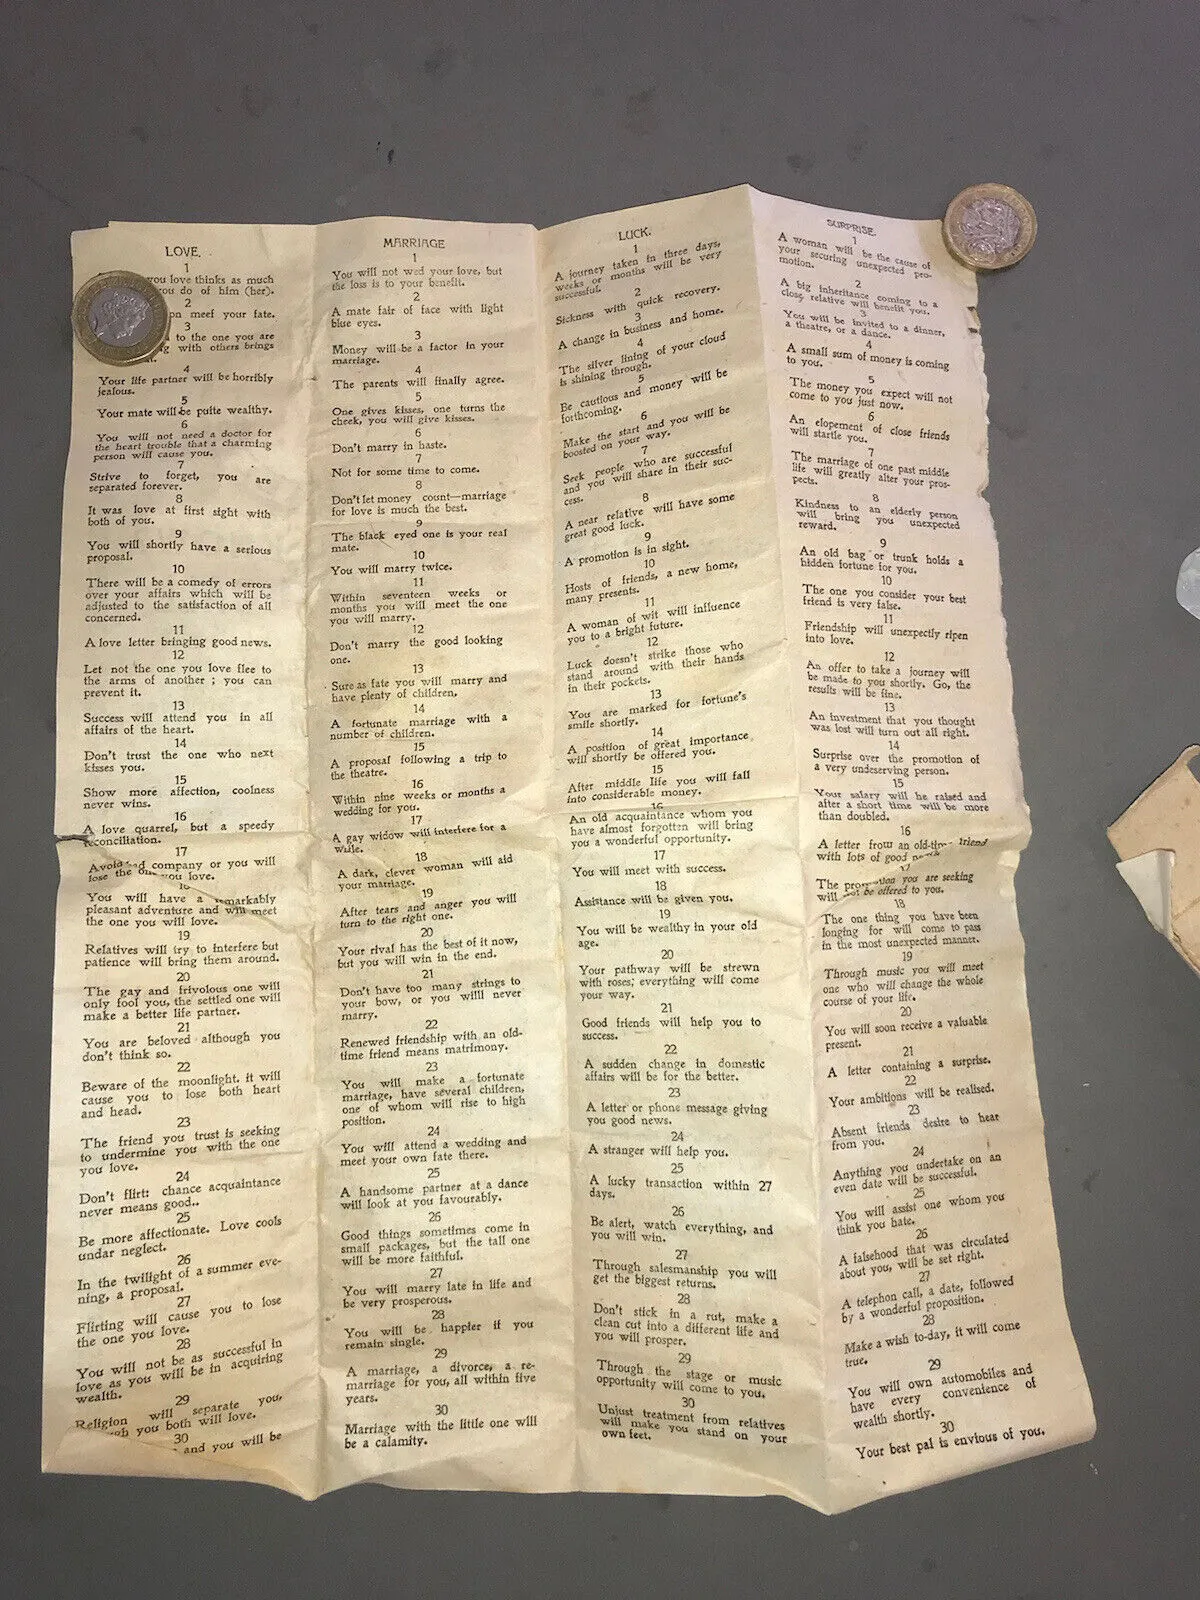 LOVE.
1
you love thinks as much
you do of him (her).
2
meet your fate.
3
to the one you are
with others brings
4
Your life partner will be horribly
jealous.
5
Your mate will be puite wealthy.
6
You will not need a doctor for
the heart trouble that a charming
person will cause you.
7
Strive to forget, you are
separated forever.
8
It was love at first sight with
both of you.
9
You will shortly have a serious
proposal.
10
There will be a comedy of errors
over your affairs which will be
adjusted to the satisfaction of all
concerned.
11
A love letter bringing good news.
12
Let not the one you love flee to
the arms of another ; you can
prevent it.
13
Success will attend you in all
affairs of the heart.
14
Don't trust the one who next
kisses you.
15
Show more affection, coolness
never wins.
16
A love quarrel, but a speedy
reconciliation.
17
Avoid bad company or you will
lose the one you love.
18
You will have a remarkably
pleasant adventure and will meet
the one you will love.
19
Relatives will try to interfere but
patience will bring them around.
20
The gay and frivolous one will
only fool you, the settled one will
make a better life partner.
21
You are beloved although you
don't think so.
22
Beware of the moonlight. it will
cause you to lose both heart
and head.
23
The friend you trust is seeking
to undermine you with the one
you love.
24
Don't flirt: chance acquaintance
never means good..
25
Be more affectionate. Love cools
undar neglect.
26
In the twilight of a summer eve-
ning, a proposal.
27
Flirting will cause you to lose
the one you love.
28
You will not be as successful in
love as you will be in acquiring
wealth.
29
Religion will separate you,
you both will love.
30
and you will be
MARRIAGE
1
You will not wed your love, but
the loss is to your benefit.
2
A mate fair of face with light
blue eyes.
3
Money will be a factor in your
marriage.
4
The parents will finally agree.
5
One gives kisses, one turns the
cheek, you will give kisses.
6
Don't marry in haste.
7
Not for some time to come.
8
Don't let money count—marriage
for love is much the best.
9
The black eyed one is your real
mate.
10
You will marry twice.
11
Within seventeen weeks or
months you will meet the one
you will marry.
12
Don't marry the good looking
one.
13
Sure as fate you will marry and
have plenty of children.
14
A fortunate marriage with a
number of children.
15
A proposal following a trip to
the theatre.
16
Within nine weeks or months a
wedding for you.
17
A gay widow will interfere for a
while.
18
A dark, clever woman will aid
your marriage.
19
After tears and anger you will
turn to the right one.
20
Your rival has the best of it now,
but you will win in the end.
21
Don't have too many strings to
your bow, or you willl never
marry.
22
Renewed friendship with an old-
time friend means matrimony.
23
You will make a fortunate
marriage, have several children,
one of whom will rise to high
position.
24
You will attend a wedding and
meet your own fate there.
25
A handsome partner at a dance
will look at you favourably.
26
Good things sometimes come in
small packages, but the tall one
will be more faithful.
27
You will marry late in life and
be very prosperous.
28
You will be happier if you
remain single.
29
A marriage, a divorce, a re-
marriage for you, all within five
years.
30
Marriage with the little one will
be a calamity.
LUCK.
1
A journey taken in three days,
weeks or months will be very
successful.
2
Sickness with quick recovery.
3
A change in business and home.
4
The silver lining of your cloud
is shining through.
5
Be cautious and money will be
forthcoming.
6
Make the start and you will be
boosted on your way.
7
Seek people who are successful
and you will share in their suc-
cess.
8
A near relative will have some
great good luck.
9
A promotion is in sight.
10
Hosts of friends, a new home,
many presents.
11
A woman of wit will influence
you to a bright future.
12
Luck doesn't strike those who
stand around with their hands
in their pockets.
13
You are marked for fortune's
smile shortly.
14
A position of great importance
will shortly be offered you.
15
After middle life you will fall
into considerable money.
16
An old acquaintance whom you
have almost forgotten will bring
you a wonderful opportunity.
17
You will meet with success.
18
Assistance will be given you.
19
You will be wealthy in your old
age.
20
Your pathway will be strewn
with roses; everything will come
your way.
21
Good friends will help you to
success.
22
A sudden change in domestic
affairs will be for the better.
23
A letter or phone message giving
you good news.
24
A stranger will help you.
25
A lucky transaction within 27
days.
26
Be alert, watch everything, and
you will win.
27
Through salesmanship you will
get the biggest returns.
28
Don't stick in a rut, make a
clean cut into a different life and
you will prosper.
29
Through the stage or music
opportunity will come to you.
30
Unjust treatment from relatives
will make you stand on your
own feet.
SURPRISE.
1
A woman will be the cause of
your securing unexpected pro-
motion.
2
A big inheritance coming to a
close relative will benefit you.
3
You will be invited to a dinner,
a theatre, or a dance.
4
A small sum of money is coming
to you.
5
The money you expect will not
come to you just now.
6
An elopement of close friends
will startle you.
7
The marriage of one past middle
life will greatly alter your pros-
pects.
8
Kindness to an elderly person
will bring you unexpected
reward.
9
An old bag or trunk holds a
hidden fortune for you.
10
The one you consider your best
friend is very false.
11
Friendship will unexpectly ripen
into love.
12
An offer to take a journey will
be made to you shortly. Go, the
results will be fine.
13
An investment that you thought
was lost will turn out all right.
14
Surprise over the promotion of
a very undeserving person.
15
Your salary will be raised and
after a short time will be more
than doubled.
16
A letter from an old-time friend
with lots of good news
17
The promotion you are seeking
will not be offered to you.
18
The one thing you have been
longing for will come to pass
in the most unexpected manner.
19
Through music you will meet
one who will change the whole
course of your life.
20
You will soon receive a valuable
present.
21
A letter containing a surprise.
22
Your ambitions will be realised.
23
Absent friends desire to hear
from you.
24
Anything you undertake on an
even date will be successful.
25
You will assist one whom you
think you hate.
26
A falsehood that was circulated
about you, will be set right.
27
A telephon call, a date, followed
by a wonderful proposition.
28
Make a wish to-day, it will come
true.
29
You will own automobiles and
have every convenience of
wealth shortly.
30
Your best pal is envious of you.